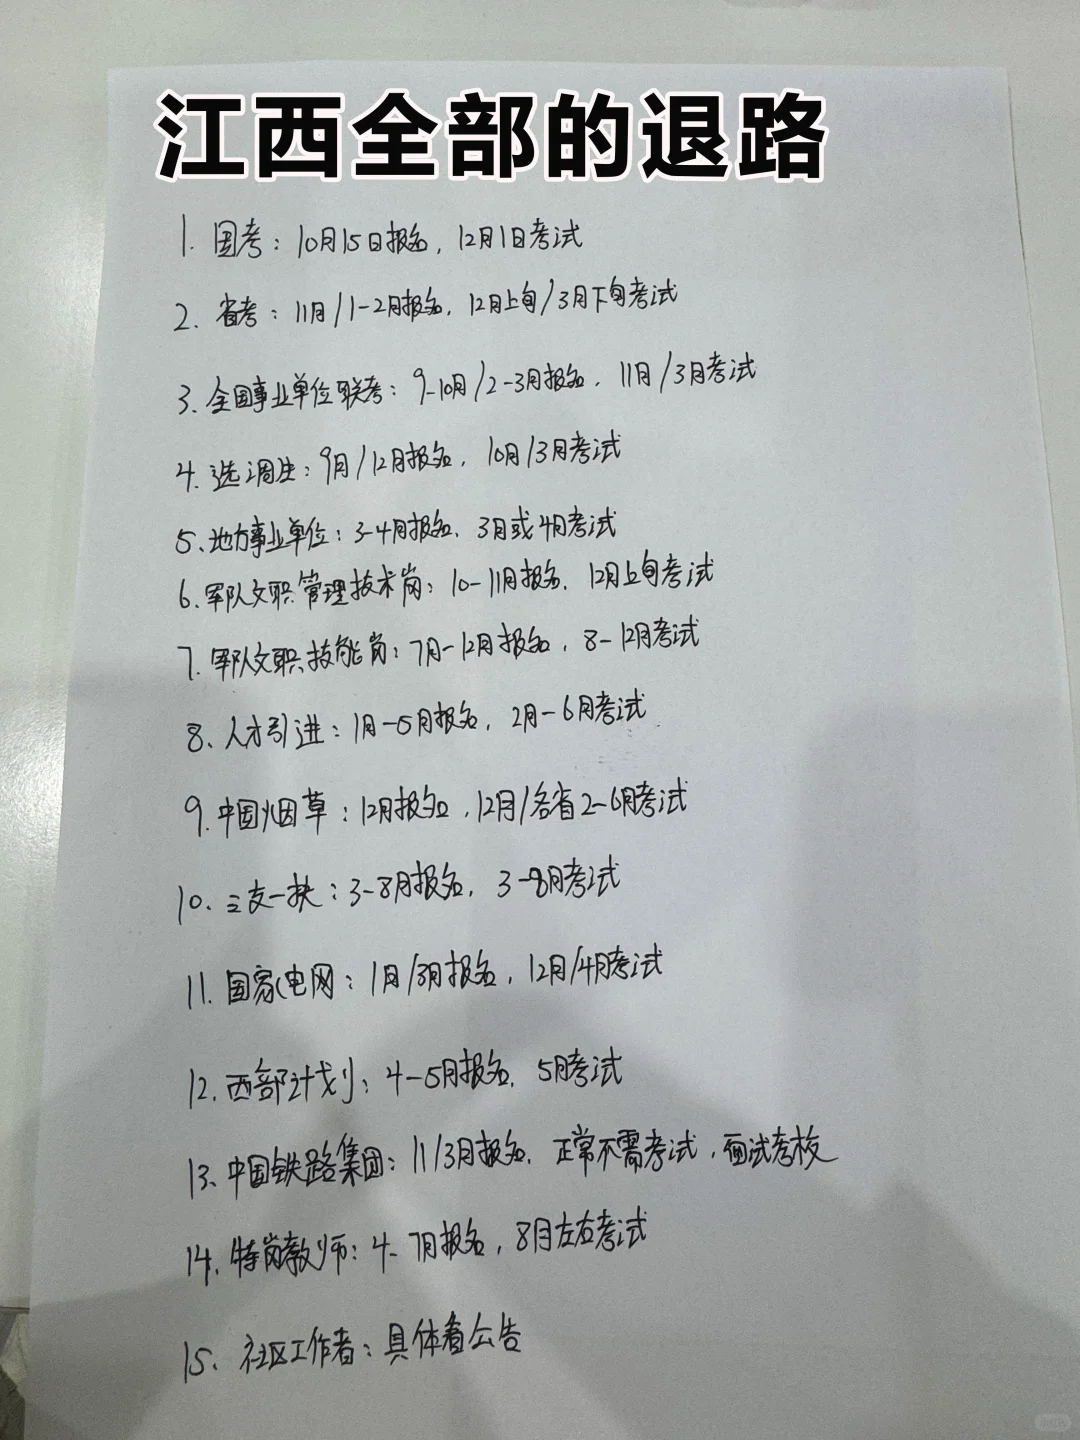 江西全部的退路
1. 国考：10月15日报名，12月1日考试
2. 省考：11月/1-2月报名，12月上旬/3月下旬考试
3. 全国事业单位联考：9-10月/2-3月报名，11月/3月考试
4. 选调生：9月/12月报名，10月/3月考试
5、地方事业单位：3-4月报名，3月或4月考试
6、军队文职管理技术岗：10-11月报名，12月上旬考试
7、军队文职技能岗：7月-12月报名，8-12月考试
8、人才引进：1月-5月报名，2月-6月考试
9.中国烟草：12月报名，12月/各省2-6月考试
10、三支一扶：3-8月报名，3-8月考试
11. 国家电网：1月/3月报名，12月/4月考试
12. 西部计划：4-5月报名，5月考试
13、中国铁路集团：11/3月报名，正常不需考试，面试考核
14、特岗教师：4-7月报名，8月左右考试
15、社区工作者：具体看公告